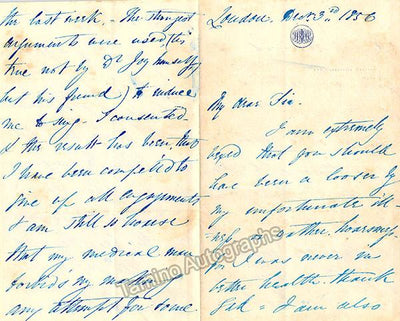 London. Decr 3rd 1856
My dear Sir.
I am extremely
vexed that you should
have been a looser by
my unfortunate ill-
ness, or rather hoarseness
for I was never in
better health. thank
God = I am also
the last week. The strongest
arguments were used (it is
true not by Dr Joy himself
but his friend) to induce
me to sing. I consented
& the result has been that
I have been compelled to
give up all engagements
I am still so hoarse
that my medical man
forbids my making
any attempt for some
Tamino Autographs